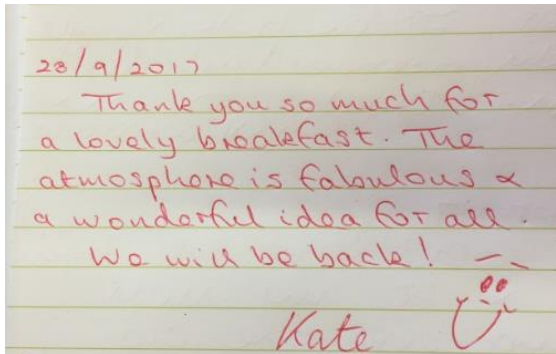 23/9/2017
Thank you so much for
a lovely breakfast. The
atmosphere is fabulous &
a wonderful idea for all.
We will be back!
Kate